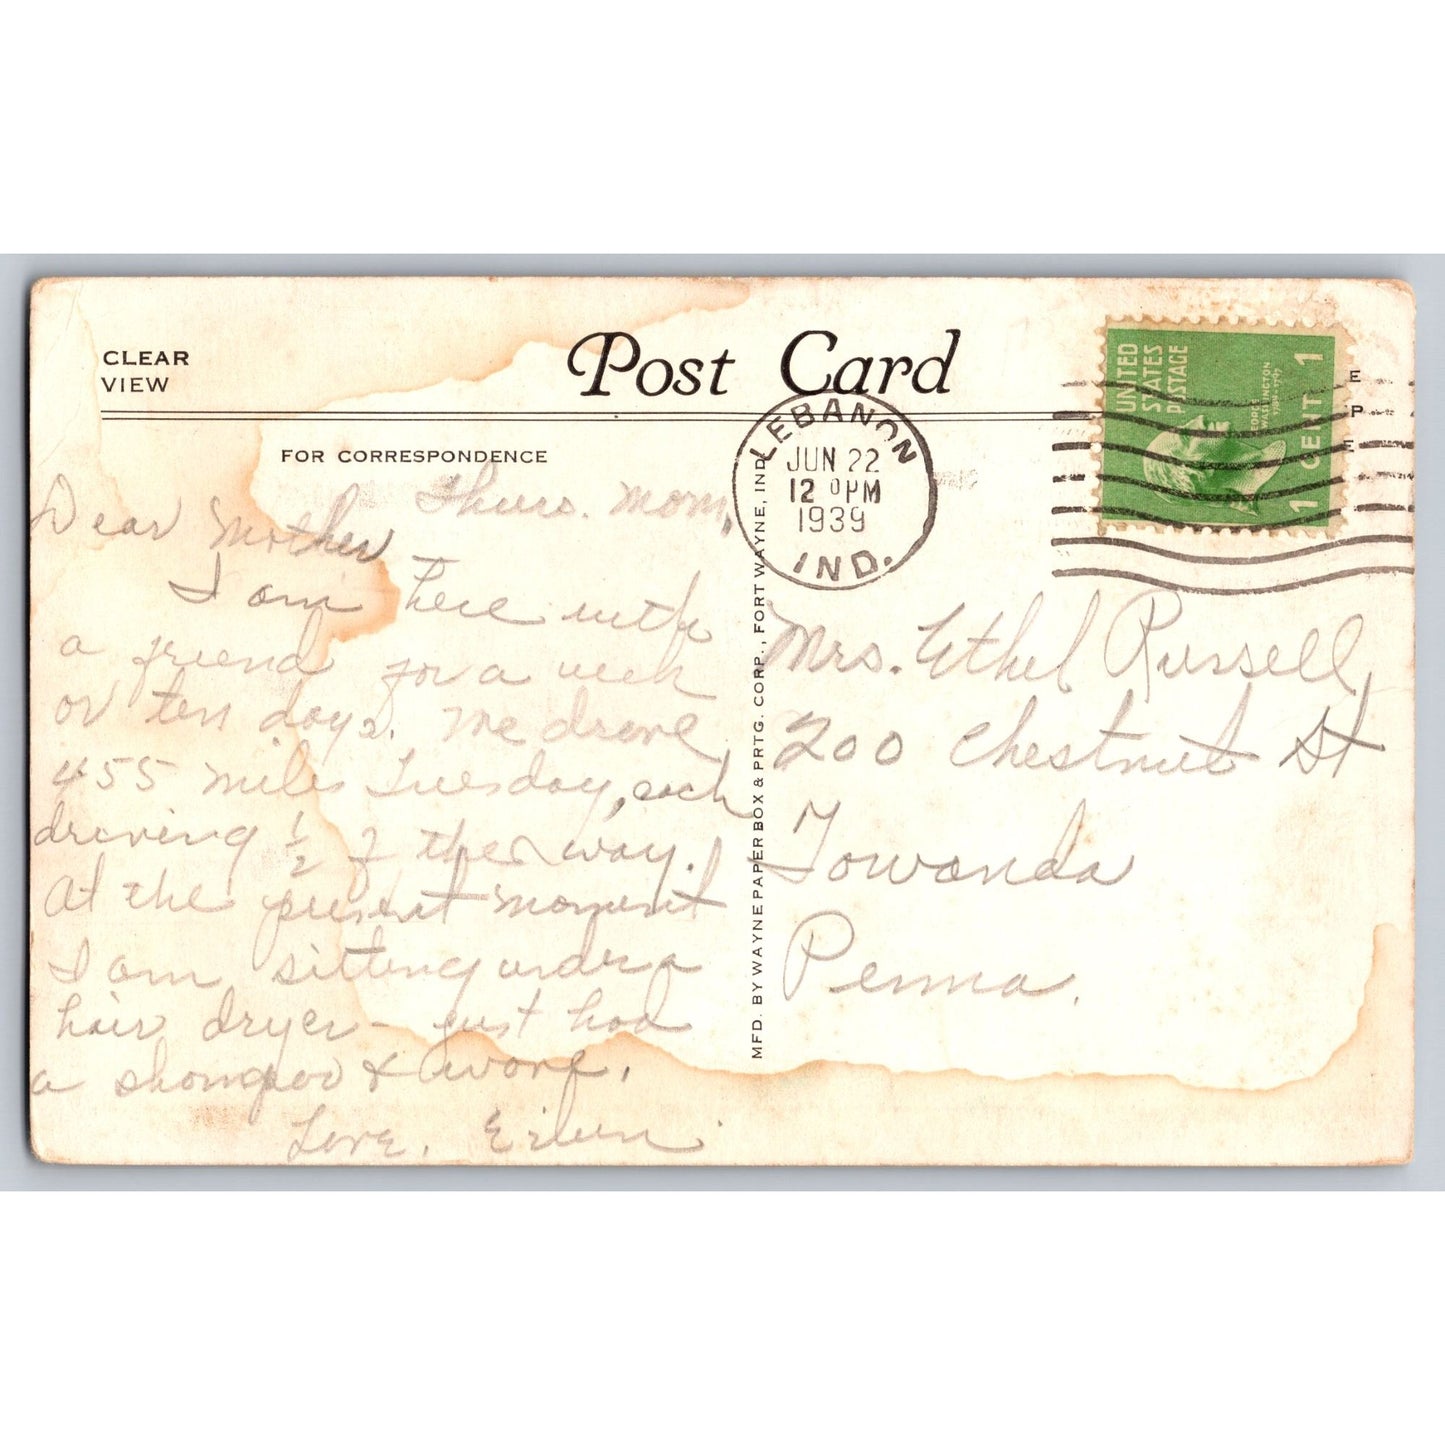 CLEAR
VIEW
Post Card
FOR CORRESPONDENCE
Thurs. Morn,
Dear Mother
I am here with
a friend for a week
or ten days. We drove
455 miles Tuesday, each
driving 1/2 of the way.
At the present moment
I am sitting under a
hair dryer - just had
a shampoo & wave.
Love,
MFD. BY WAYNE PAPER BOX & PRTG. CORP., FORT WAYNE, IND.
LEBANON
JUN 22
12 PM
1939
IND.
UNITED
STATES
POSTAGE
GEORGE
WASHINGTON
1 CENT 1
E
P
E
Mrs. Ethel Russell,
200 Chestnut St
Towanda
Penna.